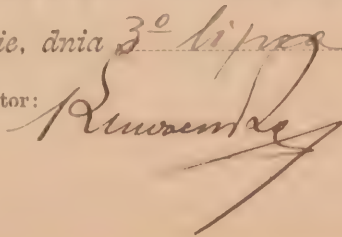 ie, dnia 3º lipca
tor: